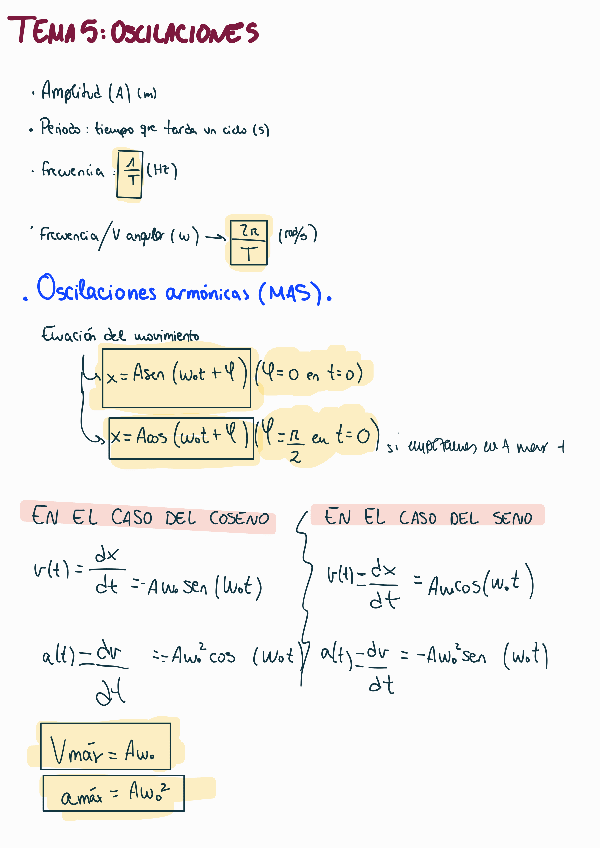 TEMA 5: OSCILACIONES
· Amplitud (A) (m)
· Periodo: tiempo que tarda un ciclo (s)
· frecuencia: 1/T (Hz)
· frecuencia/V angular (ω) → 2π/T (rad/s)
· Oscilaciones armónicas (MAS).
Ecuación del movimiento
x = A sen (ω₀t + φ) (φ = 0 en t=0)
x = A cos (ω₀t + φ) (φ = π/2 en t=0) si en A
EN EL CASO DEL COSENO
v(t) = dx/dt = -Aω₀ sen (ω₀t)
a(t) = dv/dt = -Aω₀² cos (ω₀t)
EN EL CASO DEL SENO
v(t) = dx/dt = Aω cos(ω₀t)
a(t) = dv/dt = -Aω₀² sen (ω₀t)
Vmáx = Aω₀
amáx = Aω₀²